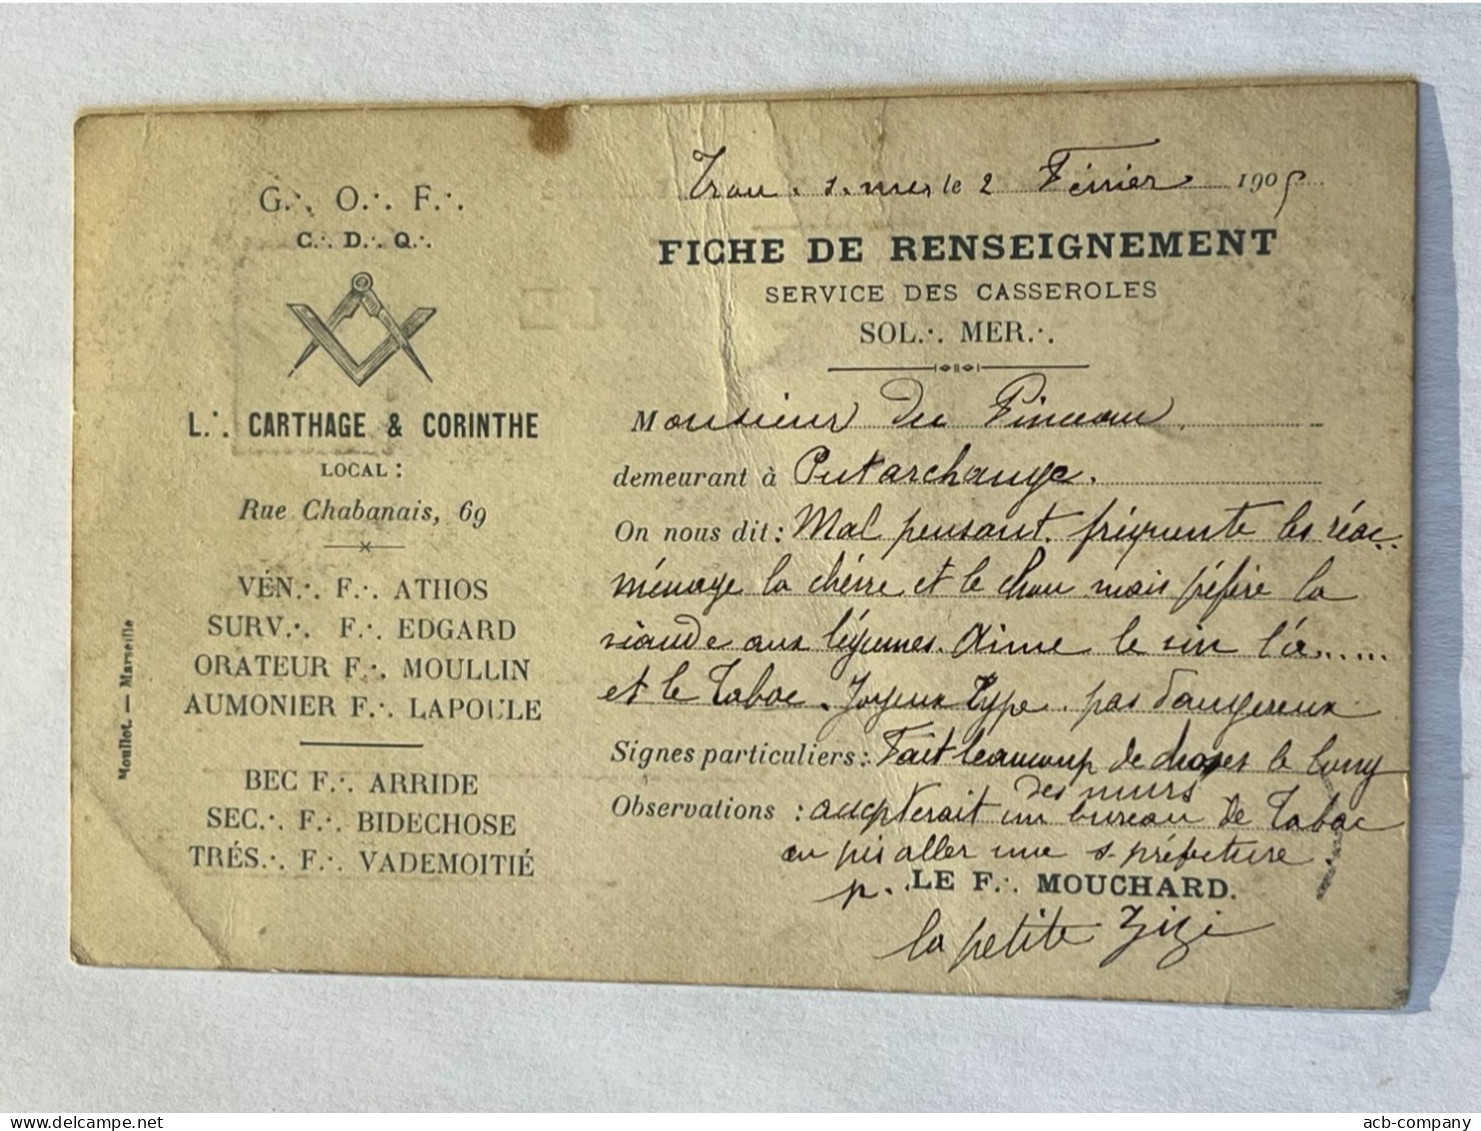 G∴ O∴ F∴
C∴ D∴ Q∴
L∴ CARTHAGE & CORINTHE
LOCAL :
Rue Chabanais, 69
VÉN∴ F∴ ATHOS
SURV∴ F∴ EDGARD
ORATEUR F∴ MOULLIN
AUMONIER F∴ LAPOULE
BEC F∴ ARRIDE
SEC∴ F∴ BIDECHOSE
TRÉS∴ F∴ VADEMOITIÉ
Moullot. — Marseille
Trou . s. mer, le 2 Février 1905
FICHE DE RENSEIGNEMENT
SERVICE DES CASSEROLES
SOL∴ MER∴
Monsieur du Pinceau
demeurant à Putarchange.
On nous dit : Mal pensant. fréquente les réac..
ménage la chèvre et le chou mais préfère la
viande aux légumes. Aime le vin l'a......
et le Tabac. Joyeux type. pas dangereux
Signes particuliers : Fait beaucoup de choses le long
des murs
Observations : accepterait un bureau de Tabac
au pis aller une s. préfecture.
p. LE F∴ MOUCHARD.
la petite Zizi
acb-company